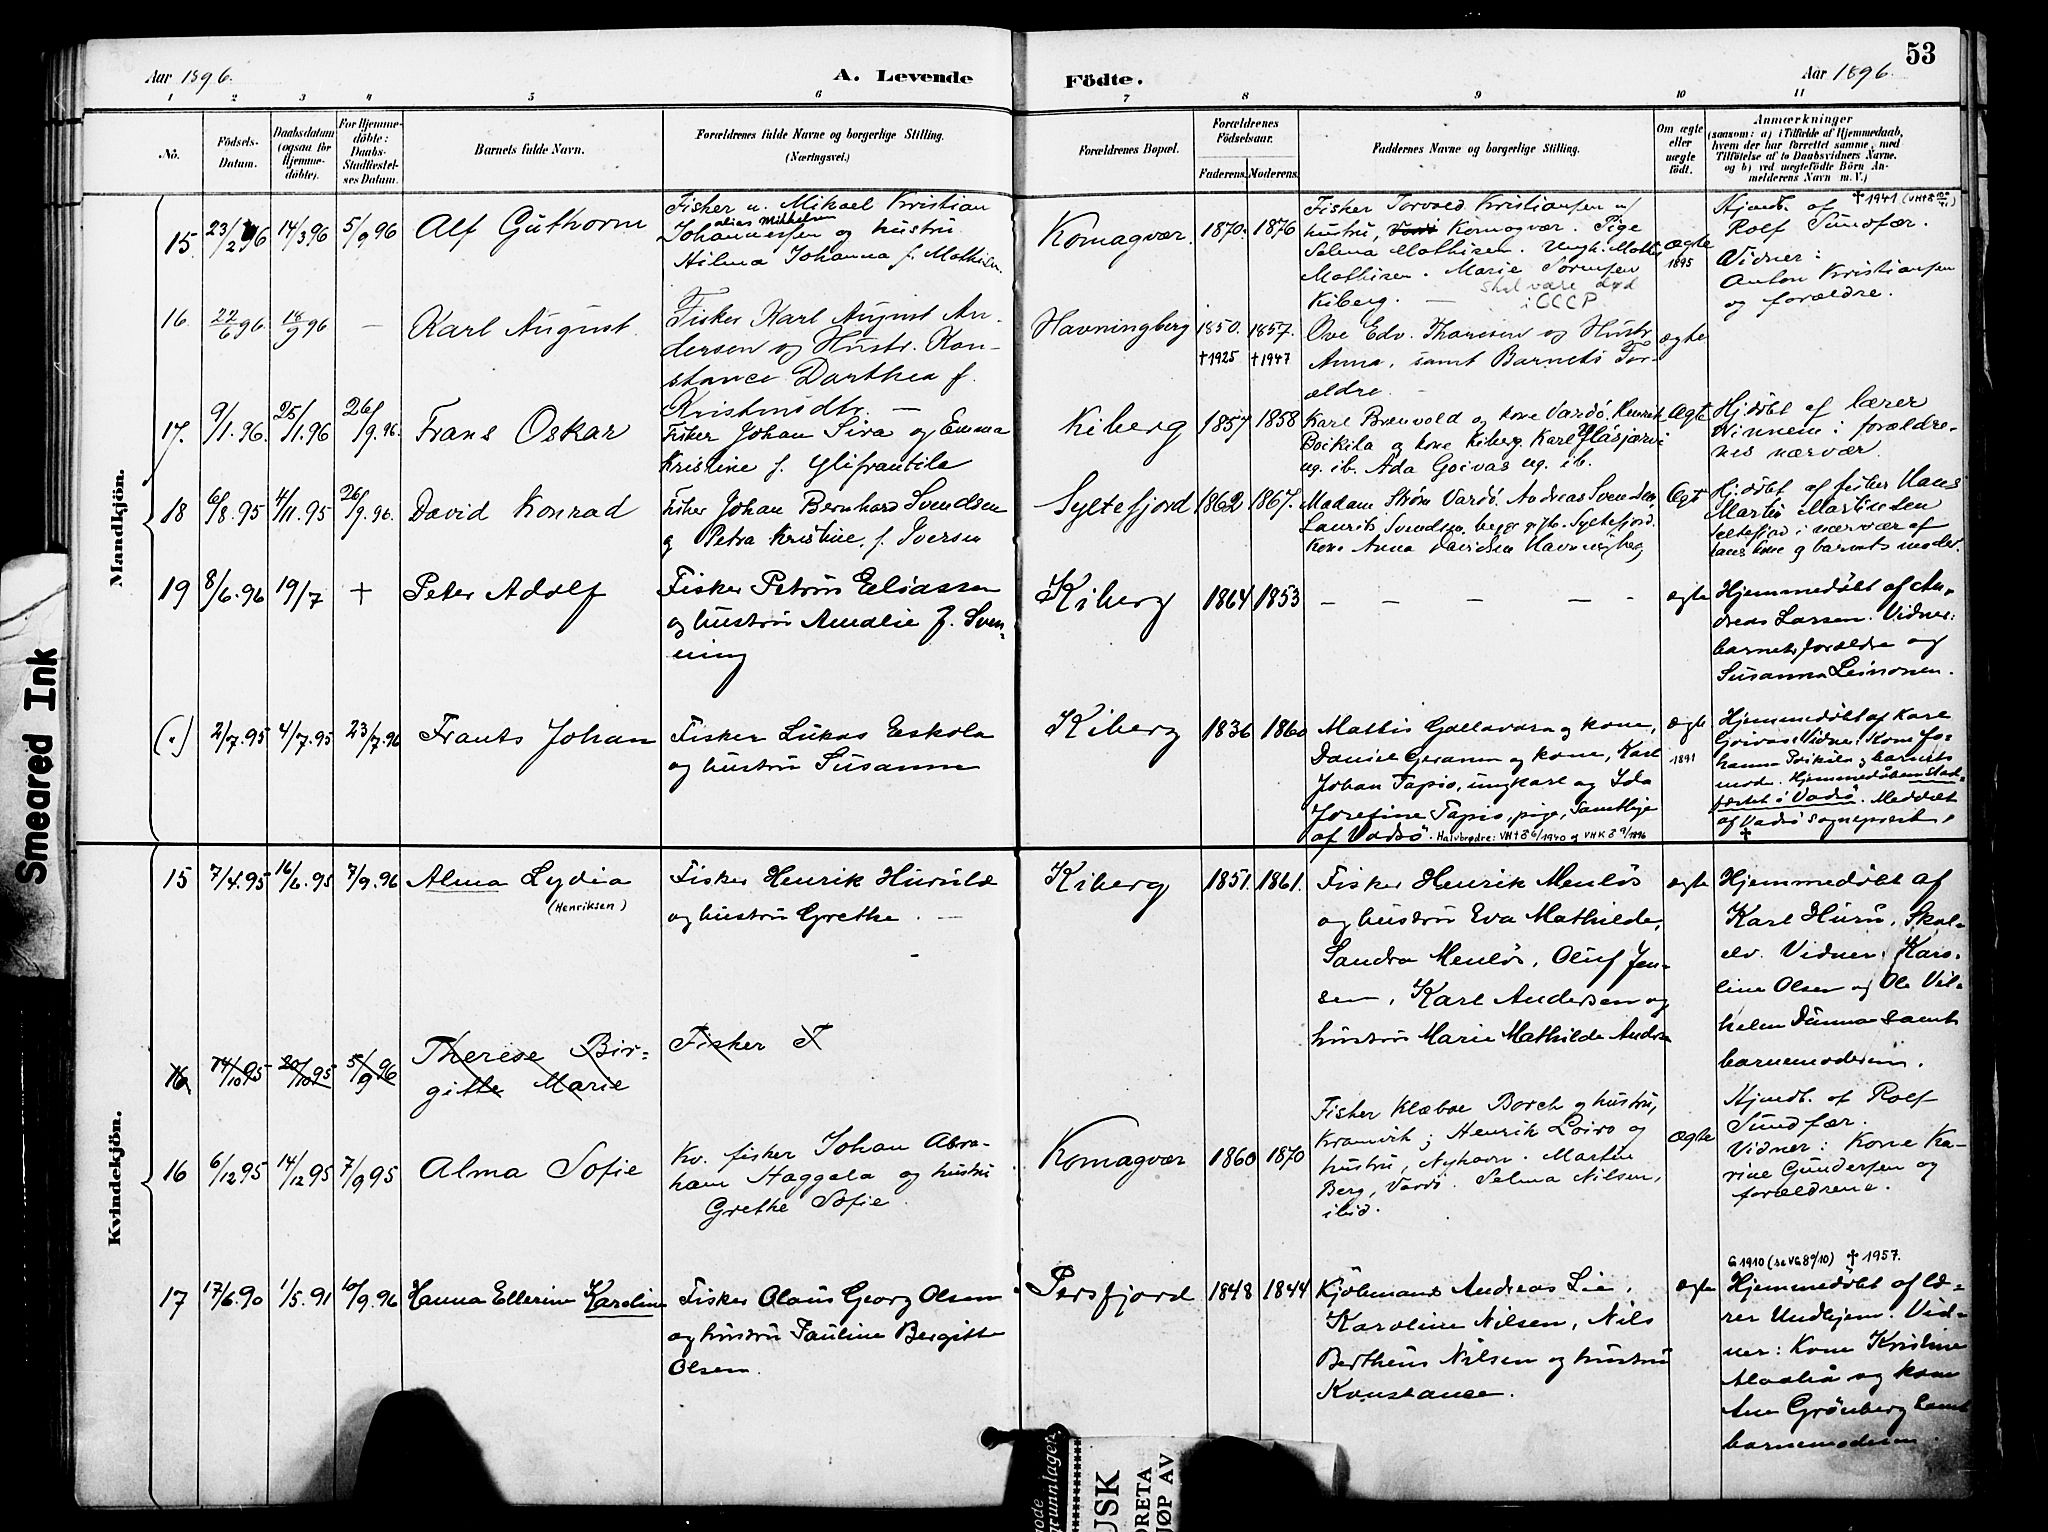 53
Aar 1896. A. Levende Födte. Aar 1896.
1 2 3 4 5 6 7 8 9 10 11
No.
Födsels-
Datum.
Daabsdatum
(ogsaa for
Hjemme-
döbte).
For Hjemme-
döbte:
Daabs-
Stadfæstel-
ses Datum.
Barnets fulde Navn.
Forældrenes fulde Navne og borgerlige Stilling.
(Næringsvei.)
Forældrenes Bopæl.
Forældrenes
Födselsaar.
Faderens. Moderens.
Faddernes Navne og borgerlige Stilling.
Om ægte
eller
uægte
født.
Anmærkninger
(saasom: a) i Tilfælde af Hjemmedaab,
hvem der har forrettet samme, med
Tilföielse af to Daabsvidners Navne.
og b) ved uægtefödte Börn An-
melderens Navn m. V.)
Mandkjön.
15. 23/2 96 14/3 96 5/9 96 Alf Guthorm
Fisker u. Mikael Kristian
alias Mikkelsen
Johannessen og hustru
Hilma Johanna f. Mathisen
Komagvær. 1870. 1876
Fisker Torvald Kristiansen og
hustru, Komagvær. Pige
Selma Mathisen. Ungk. Mathis
Mathisen. Marie Sørensen
Kiberg. —
skal være død
i CCCP
ægte
1895
† 1941
Hjmdb. af
Rolf Sundfær.
Vidner:
Anton Kristiansen
og forældre.
16 22/6 96 18/9 96 — Karl August
Fisker Karl August An-
dersen og Hustr. Kon-
stance Dorthea f.
Kristmsdtr. —
Havningberg 1850. 1857.
† 1925 † 1947
Ove Edv. Tharesen og Hustr
Anna, samt Barnets For-
ældre
ægte
17. 9/1.96. 25/1.96 26/9.96. Frans Oskar
Fisker Johan Sira og Emma
Kristine f. Ylifrantila
Kiberg 1857 1858
Karl Brænvold og kone Vardö, Henrik
Boikila og kone Kiberg. Karl Yläsjärvi
ug. ib. Ada Goivas ug. ib.
Ægt
Hjdöbt af lærer
Winnem i forældre-
nes nærvær.
18 6/8.95 4/11.95 26/9.96. David Konrad
Fisker Johan Bernhard Svendsen
og Petra Kristine, f. Iversen
Syltefjord 1862 1867.
Madam Ström Vardö. Andreas Svendsen,
Laurits Svendsen, begge ugk. Syltefjord.
Kone Anna Davidsen Havningberg
Ægt
Hjdöbt af fisker Hans
Martin Martinsen
Syltefjord i nærvær af
hans kone og barnets moder.
19 8/6.96 19/7 + Peter Adolf
Fisker Petrus Eliassen
og hustru Amalie f. Sven-
ning
Kiberg 1864 1853
— — — — —
ægte
Hjemmedöbt af An-
dreas Larsen. Vidner:
barnets forældre og
Susanna Leinonen.
(.) 2/7.95 4/7.95 23/7.96 Frants Johan
Fisker Lukas Eskola
og hustru Susanne
Kiberg 1836 1860
Mattis Gallavara og kone,
Daniel Geranen og kone, Karl
Johan Tapio, ungkarl og Ida
Josefine Tapio, pige, Samtlige
af Vadsö. Halvbrødre: VH†♂6/1940 og VHK♂9/1896
ægte
1891
Hjemmedöbt af Karl
Goivas: Vidner: Kone Jo-
hanna Poikila og barnets
mod. Hjemmedåben stad-
fæstet i Vadsö. Meddelt
af Vadsö sognepræst.
†
Kvindekjön.
15 7/4.95 16/6.95 7/9.96 Alma Lydia
(Henriksen)
Fisker Henrik Huruld
og hustru Grethe. —
Kiberg 1851. 1861.
Fisker Henrik Menlös
og hustru Eva Mathilde,
Sandra Menlös, Oluf Jen-
sen, Karl Andersen og
hustru Marie Mathilde Anders
ægte
Hjemmedöbt af
Karl Huru, Skal-
elv. Vidner: Karo-
line Olsen og Ole Vil-
helm Dunna samt
barnemoderen.
16 14/10 95 20/10 95 5/9 96 Therese Bir-
gitte Marie
Fisker T
16 6/12 95 14/12 95 7/9 95 Alma Sofie
Kv. fisker Johan Abra-
ham Haggela og hustru
Grethe Sofie.
Komagvær 1860 1870
Fisker Klæboe Borch og hustru,
Kramvik; Henrik Loiro og
hustru, Nyhavn. Martin
Berg, Vardö. Selma Nilsen,
ibid.
ægte
Hjmdb. af Rolf
Sundfær.
Vidner: Kone Ka-
rine Gundersen og
forældrene.
17 17/6.90 1/5.91 10/9.96 Hanna Ellerine Karoline
Fisker Olaus Georg Olsen
og hustru Pauline Bergitte
Olsen.
Persfjord 1848 1844
Kjöbmand Andreas Lie,
Karoline Nilsen, Nils
Bertheus Nilsen og hustru
Konstance.
ægte
G 1910 (se VG 8 9/10) † 1957.
Hjemmedöbt af læ-
rer Undhjem. Vid-
ner: Kone Kristine
og kone
Ane Grönberg samt
barnemoderen.
Smeared Ink
USK
ORETA
JØP AV
grunnlaget